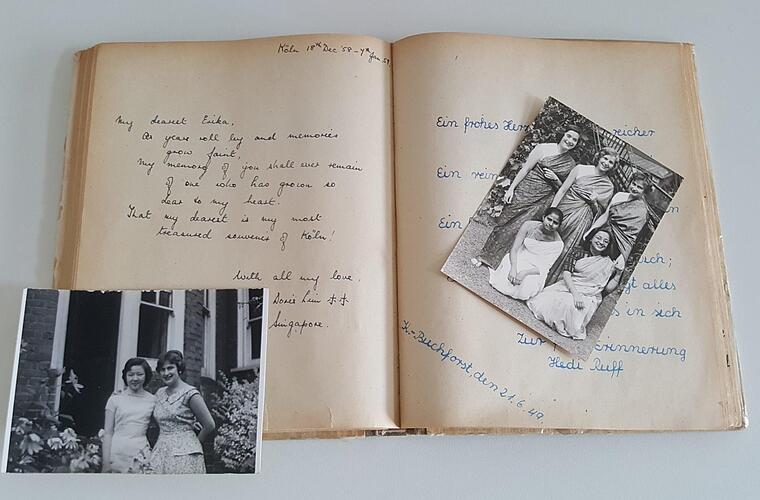 Köln 18th Dec '58 - 4th Jan 59.
My dearest Erika,
As years roll by and memories
grow faint,
My memory of you shall ever remain
of one who has grown so
dear to my heart.
That my dearest is my most
treasured souvenir of Köln!
With all my love,
Doris Lim
Singapore.
Ein frohes Her reicher
Ein rein
Ein
sich;
alles
in sich
Zur Erinnerung
Hedi Ruff
K.-Buchforst, den 21.6.49.